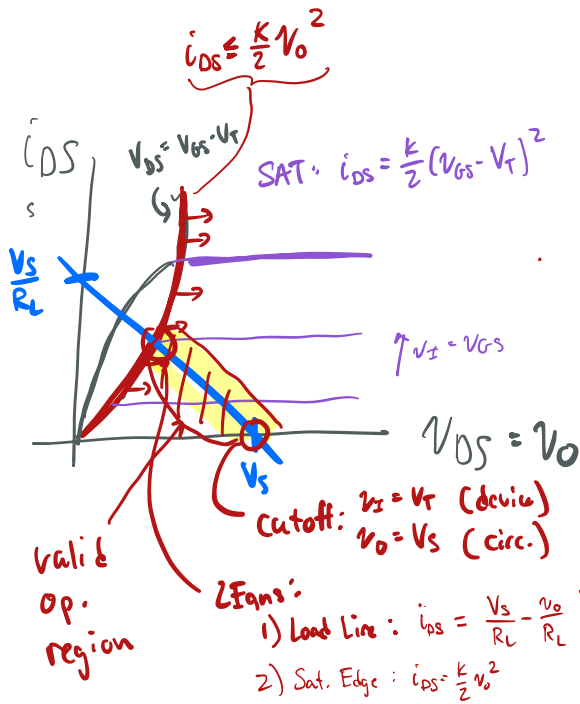 i_DS ≤ K/2 v_O^2
i_DS
s
V_DS = V_GS - V_T
SAT: i_DS = K/2 (v_GS - V_T)^2
V_S/R_L
↑ v_I = v_GS
v_DS = v_O
V_S
cutoff: v_I = V_T (device)
v_O = V_S (circ.)
valid
op.
region
2 Eqns:
1) Load Line: i_DS = V_S/R_L - v_O/R_L
2) Sat. Edge: i_DS = K/2 v_O^2